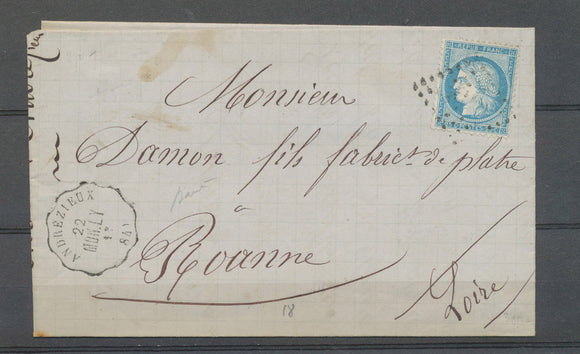 REPUB. FRANC.
Monsieur
Damon fils fabric.t de platre
à
Roanne
Loire
ANDRÉZIEUX
22
MON.LY
1°
84)
18